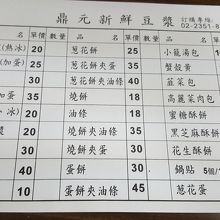 鼎元新鮮豆漿 訂購專線:
02-2351-8
單價 數量 品名 單價 數量 品名
(熱冰) 20 蔥花餅 25 小籠湯包
(加蛋) 30 蔥花餅夾蛋 35 蟹殼黃
35 蔥花餅夾油條 40 韮菜包
(加蛋) 30 燒餅 18 高麗菜肉包
30 油條 18 蜜糖酥餅
漿 35 燒餅夾油條 35 黑芝麻酥餅
燒餅夾蛋 30 花生酥餅
40 蛋餅 30 鍋貼 5個/1
10 蛋餅夾油條 45 蔥花蛋